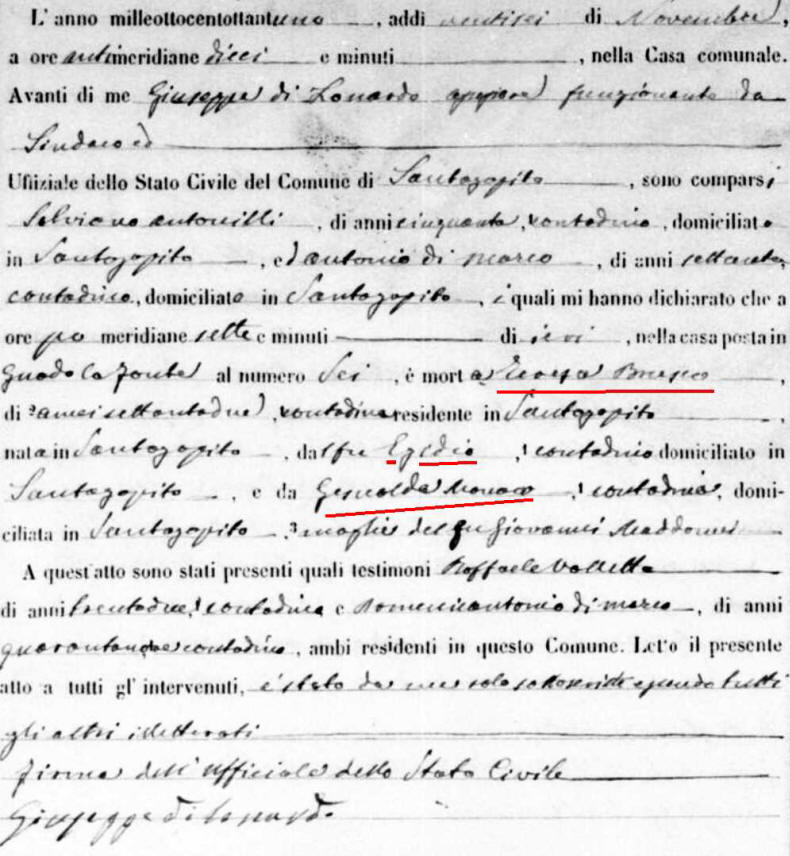 L'anno milleottocentottantuno, addi ventisei di Novembre,
a ore antimeridiane dieci e minuti , nella Casa comunale.
Avanti di me Giuseppe di Lonardo funzionante da
Sindaco ed
Uffiziale dello Stato Civile del Comune di Santagapito, sono comparsi
Silviano antonilli, di anni cinquanta, contadino, domiciliato
in Santagapito, ed antonio di marco, di anni settanta,
contadino, domiciliato in Santagapito, i quali mi hanno dichiarato che a
ore po meridiane sette e minuti di ieri, nella casa posta in
Guado la fonte al numero Sei, è morta Teresa Brusco,
di anni settantadue, contadina residente in Santagapito,
nata in Santagapito, dal fu Egidio, contadino domiciliato in
Santagapito, e da Monaco, contadina, domi-
ciliata in Santagapito, moglie del fu Giovanni
A quest'atto sono stati presenti quali testimoni Raffaele Valletta
di anni trentadue, contadino e Domenicantonio di marco, di anni
contadino, ambi residenti in questo Comune. Letto il presente
atto a tutti gl' intervenuti, è stato da me solo sottoscritto essendo tutti
gli altri illetterati
firma dell'Ufficiale dello Stato Civile
Giuseppe di Lonardo